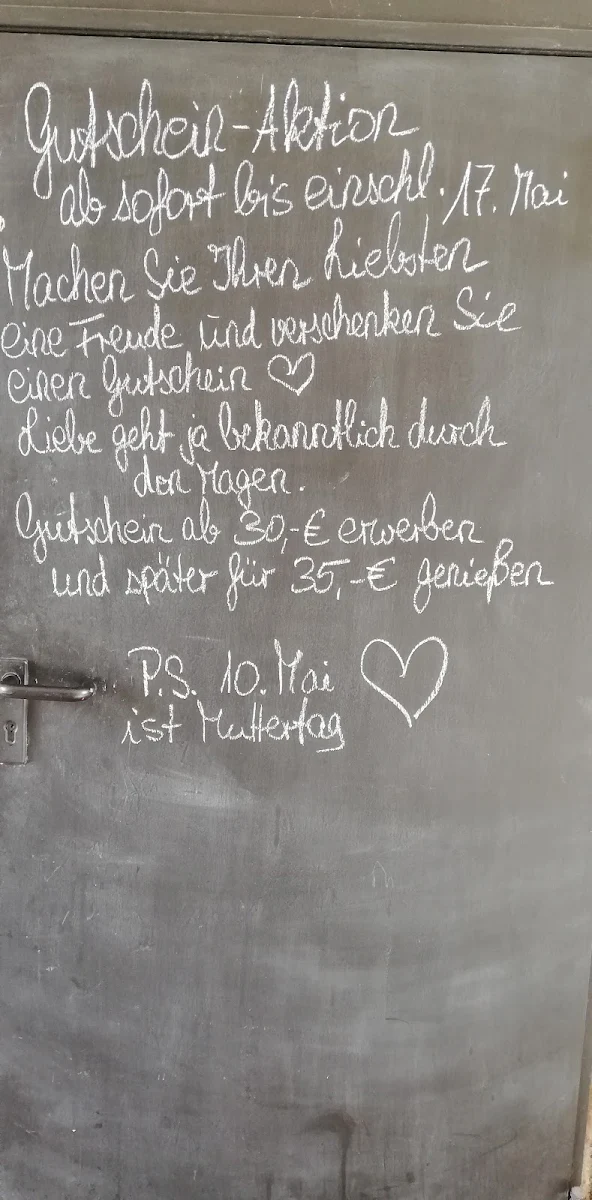 Gutschein-Aktion
ab sofort bis einschl. 17. Mai
Machen Sie Ihren Liebsten
eine Freude und verschenken Sie
einen Gutschein ♡
Liebe geht ja bekanntlich durch
den Magen.
Gutschein ab 30,-€ erwerben
und später für 35,-€ genießen
P.S. 10. Mai ♡
ist Muttertag